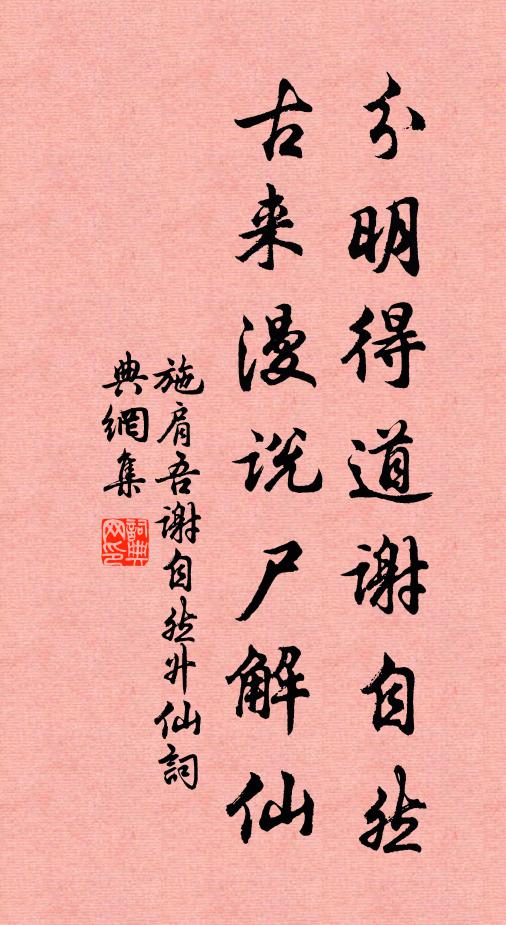 分明得道谢自然
古来漫说尸解仙
施肩吾谢自然升仙词
典網集
詞典
网印